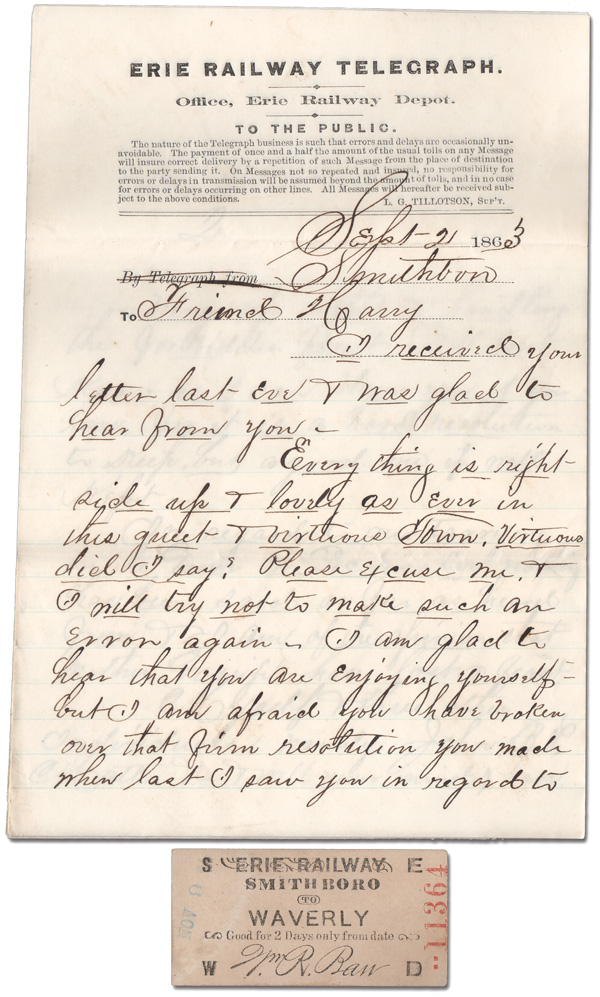 ERIE RAILWAY TELEGRAPH.
Office, Erie Railway Depot.
TO THE PUBLIC.
The nature of the Telegraph business is such that errors and delays are occasionally un-
avoidable. The payment of once and a half the amount of the usual tolls on any Message
will insure correct delivery by a repetition of such Message from the place of destination
to the party sending it. On Messages not so repeated and insured, no responsibility for
errors or delays in transmission will be assumed beyond the amount of tolls, and in no case
for errors or delays occurring on other lines. All Messages will hereafter be received sub-
ject to the above conditions. L. G. TILLOTSON, SUP'T.
Sept 2 1863
By Telegraph from Smithboro
To Friend Harry
I received your
letter last Eve & was glad to
hear from you -
Every thing is right
side up & lovely as Ever in
this quiet & virtuous Town. Virtuous
did I say? Please Excuse me, &
I will try not to make such an
Error again - I am glad to
hear that you are Enjoying yourself -
but I am afraid you have broken
over that firm resolution you made
when last I saw you in regard to
S ERIE RAILWAY E
SMITHBORO
TO
WAVERLY
Good for 2 Days only from date
W Wm R. Barr D
NOV 9
11364